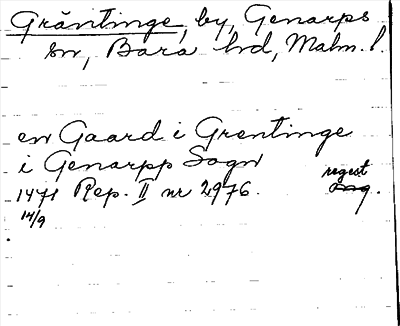 Gräntinge, by, Genarps
sn, Bara hd, Malm. l.
en Gaard i Grentinge
i Genarpp Sogn
regest
1471 Rep. II nr 2976.
14/9